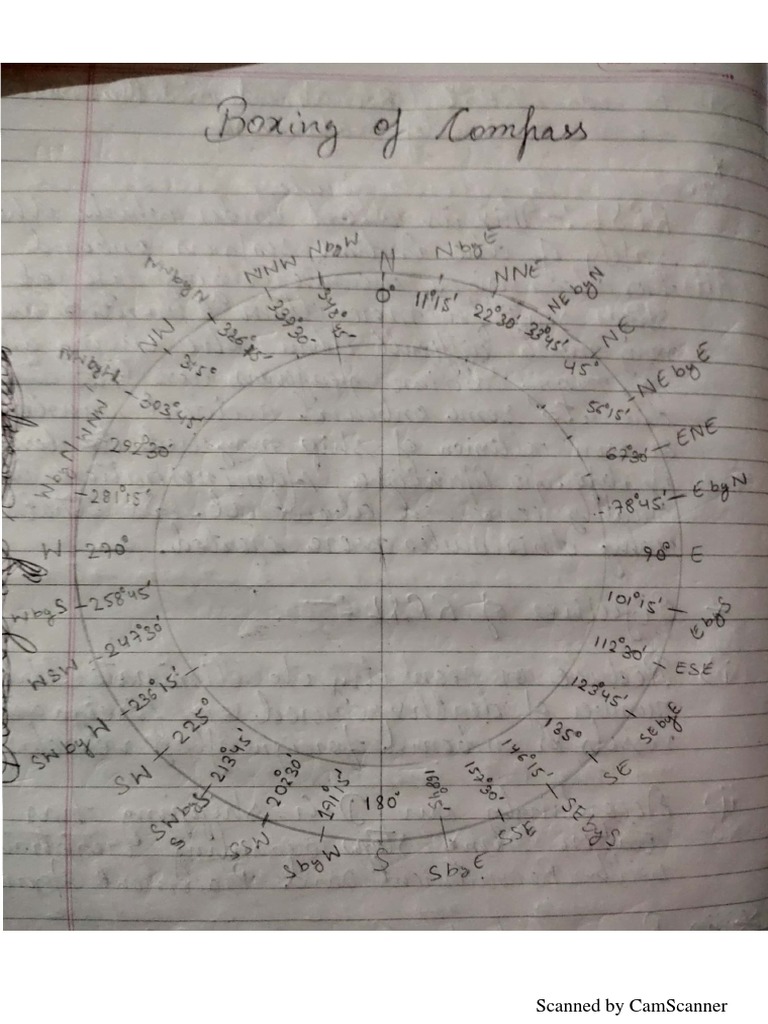 Boxing of Compass
N
0°
N by E
11°15'
NNE
22°30'
NE by N
33°45'
NE
45°
NE by E
56°15'
ENE
67°30'
E by N
78°45'
E
90°
E by S
101°15'
ESE
112°30'
SE by E
123°45'
SE
135°
SE by S
146°15'
SSE
157°30'
S by E
168°45'
S
180°
S by W
191°15'
SSW
202°30'
SW by S
S
213°45'
SW
225°
SW by W
236°15'
WSW
247°30'
W by S
258°45'
W
270°
W by N
281°15'
WNW
292°30'
303°45'
NW
315°
NNW
N by W
Scanned by CamScanner